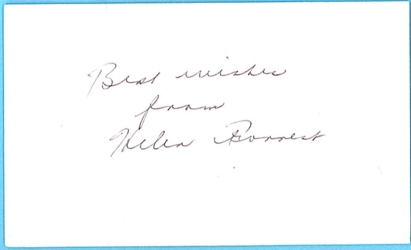 Best wishes
from
Helen Forrest